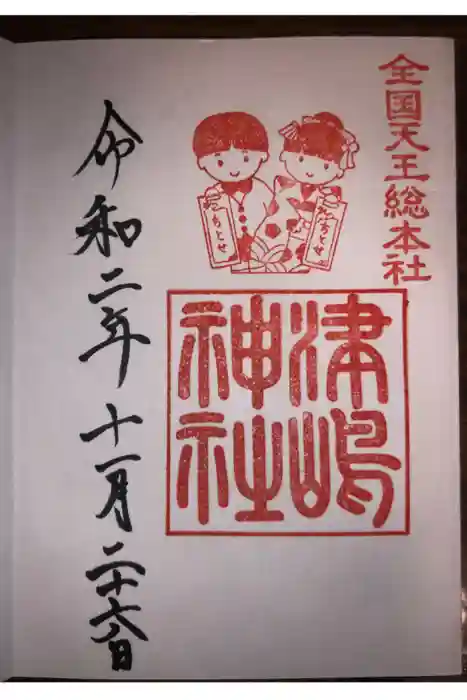 全国天王総本社
ちとせ
ちとせ
津嶋
神社
令和二年十一月二十六日